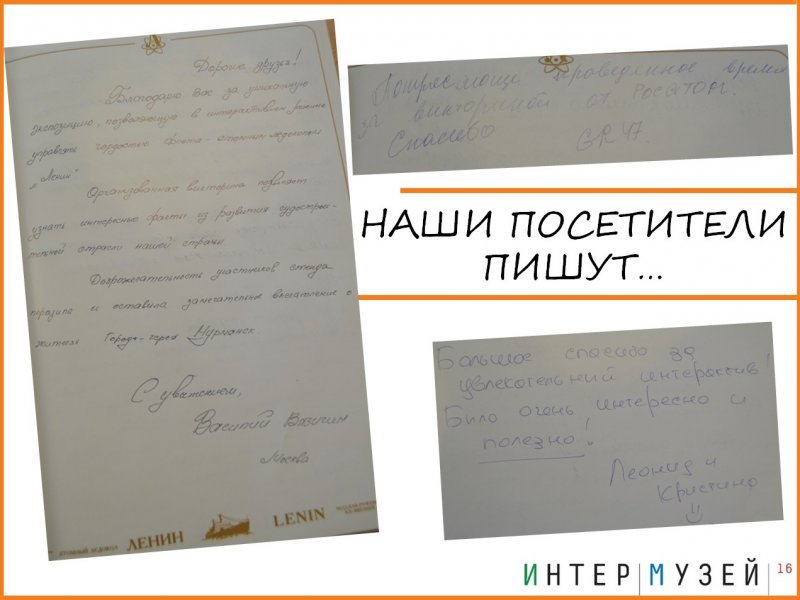 Дорогие друзья!
Благодарю Вас за уникальную
экспозицию, позволяющую в интерактивном режиме
управлять гордостью флота - атомным ледоколом
"Ленин"
Организованная викторина позволяет
узнать интересные факты из развития судострои-
тельной отрасли нашей страны.
Доброжелательность участников стенда
поразила и оставила замечательное впечатление о
жителях города-героя Мурманск
С уважением,
Василий
Москва
АТОМНЫЙ ЛЕДОКОЛ ЛЕНИН LENIN
Потрясающе проведенное время
за викториной от РОСАТОМ.
Спасибо
НАШИ ПОСЕТИТЕЛИ
ПИШУТ...
Большое спасибо за
увлекательний интерактив!
Было очень интересно и
полезно!
Леонид и
Кристина
ИНТЕР|МУЗЕЙ 16